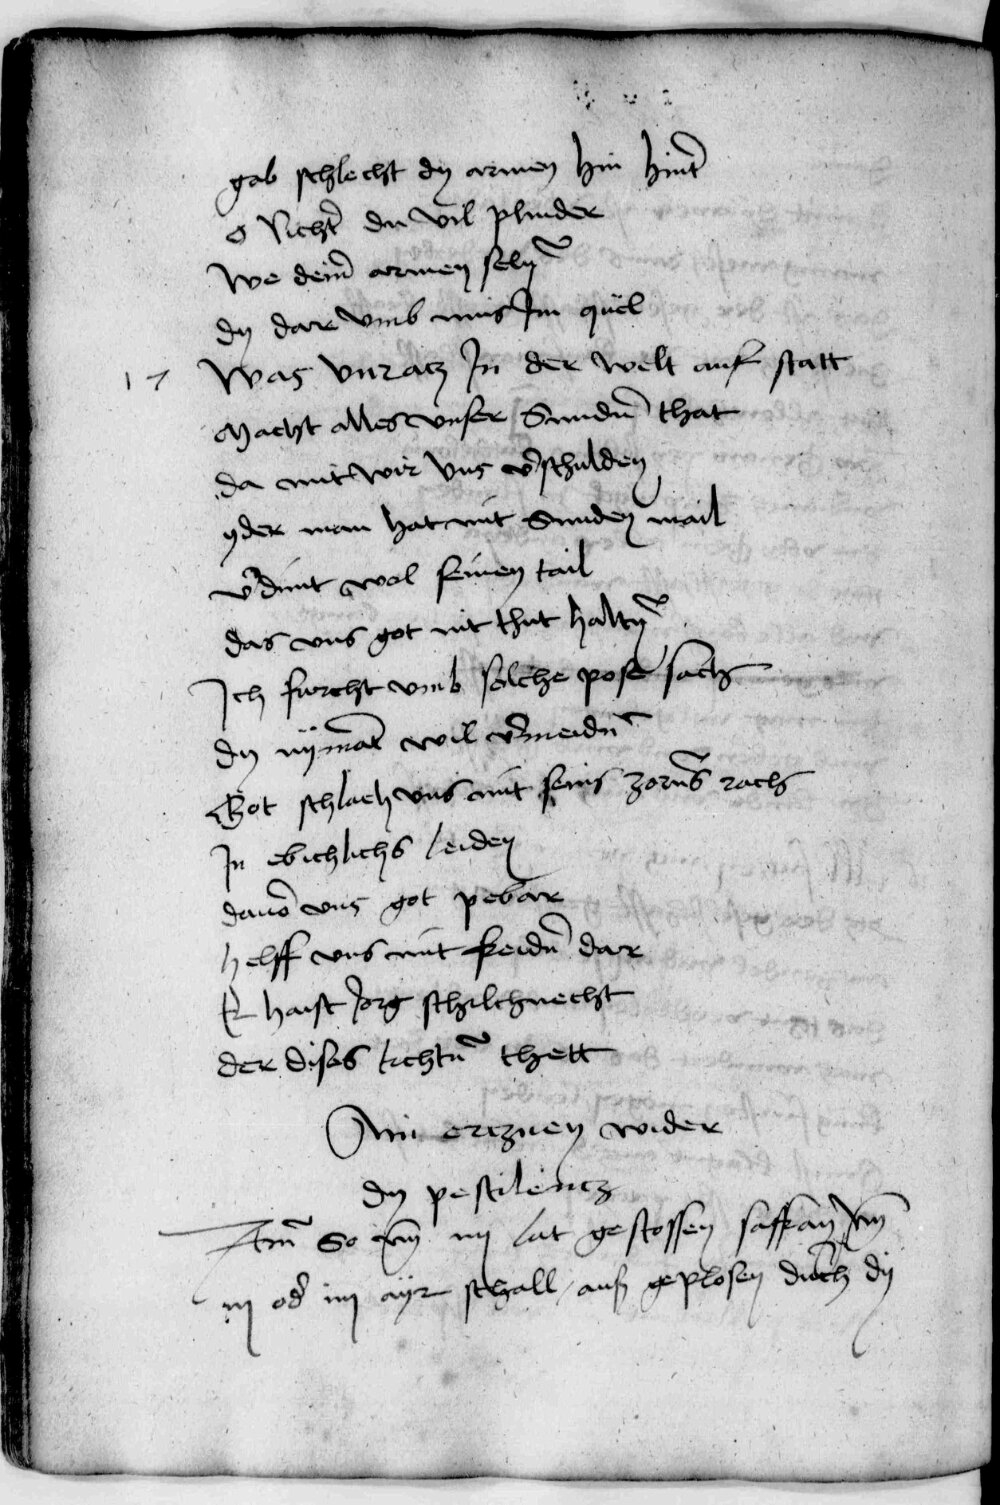 gab schlecht dy armen hin hint͛
o Richt͛ du vil plinder
We deim̄ armen selñ
dy dar vmb mus Jn quel
17 Was vnratz Jn der welt auf statt
Macht alles vnser Sundn̄ that
da mit wir vns v͛schulden
yder man hat mit Sunden mail
v͛dint wol seinen tail
das vns got nit thut haltn̄
Ich furcht vmb solche pose sach
dy nÿmāt wil v͛meidn̄
Got schlach vns mit seins zorns̄ rach
Jn ebichlichs leiden
dauō vns got pebar
helff vns mit freidn̄ dar
Er haist Jorg schilchnecht
der dises tichtn̄ thett
Ain ertzney wider
dy pestilentz
Jtm̄ So nym̄ iij lat gestossen saffran vn̄
iij od͛ iiij ayr schall auß geplosen durch dy